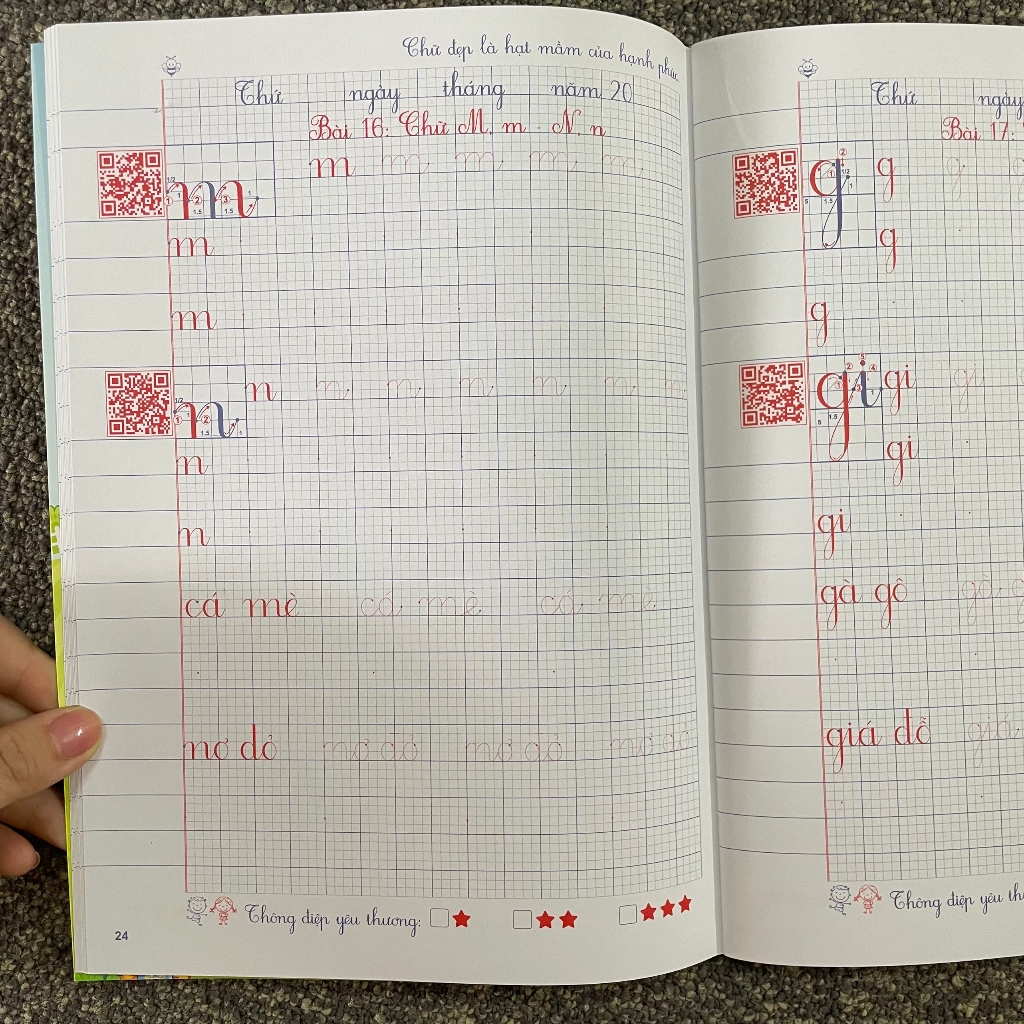 Chữ đẹp là hạt mầm của hạnh phúc
Thứ ngày tháng năm 20
Bài 16: Chữ M, m - N, n
m m m m m
1/2 1 1 1
1 2 3
1.5 1.5
m
m
n n n n n n n
1/2 1 1
1 2
1.5
n
n
cá mè cá mè cá mè
nơ đỏ nơ đỏ nơ đỏ nơ đỏ
Thông điệp yêu thương:
24
Thứ ngày
Bài 17:
g g g
2
1 1/2
1
5 1.5
g
g
gi gi gi
5
2 4
1 3
5 1.5
gi
gi
gà gô gà g
giá đỗ giá
Thông điệp yêu th